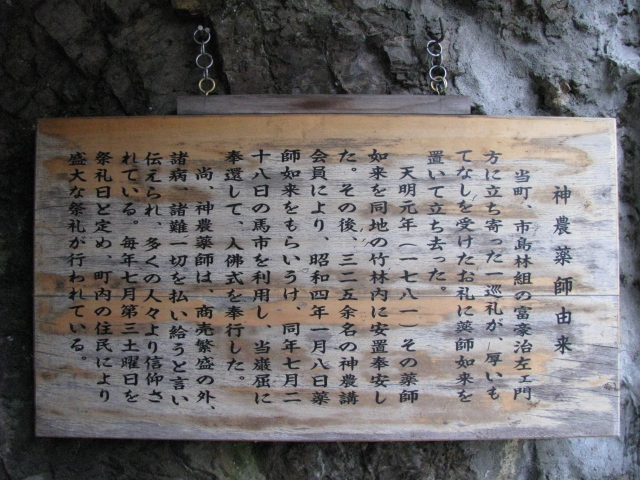 神農薬師由来
当町、市島林組の富豪治左ェ門
方に立ち寄った一巡礼が、厚いも
てなしを受けたお礼に薬師如来を
置いて立ち去った。
天明元年（一七八一）その薬師
如来を同地の竹林内に安置奉安し
た。その後、三二五余名の神農講
会員により、昭和四年一月八日薬
師如来をもらいうけ、同年七月二
十八日の馬市を利用し、当巌屈に
奉還して、入佛式を奉行した。
尚、神農薬師は、商売繁盛の外、
諸病、諸難一切を払い給うと言い
伝えられ、多くの人々より信仰さ
れている。毎年七月第三土曜日を
祭礼日と定め、町内の住民により
盛大な祭礼が行われている。